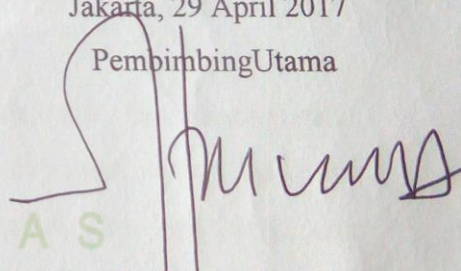 Jakarta, 29 April 2017
PembimbingUtama
A S